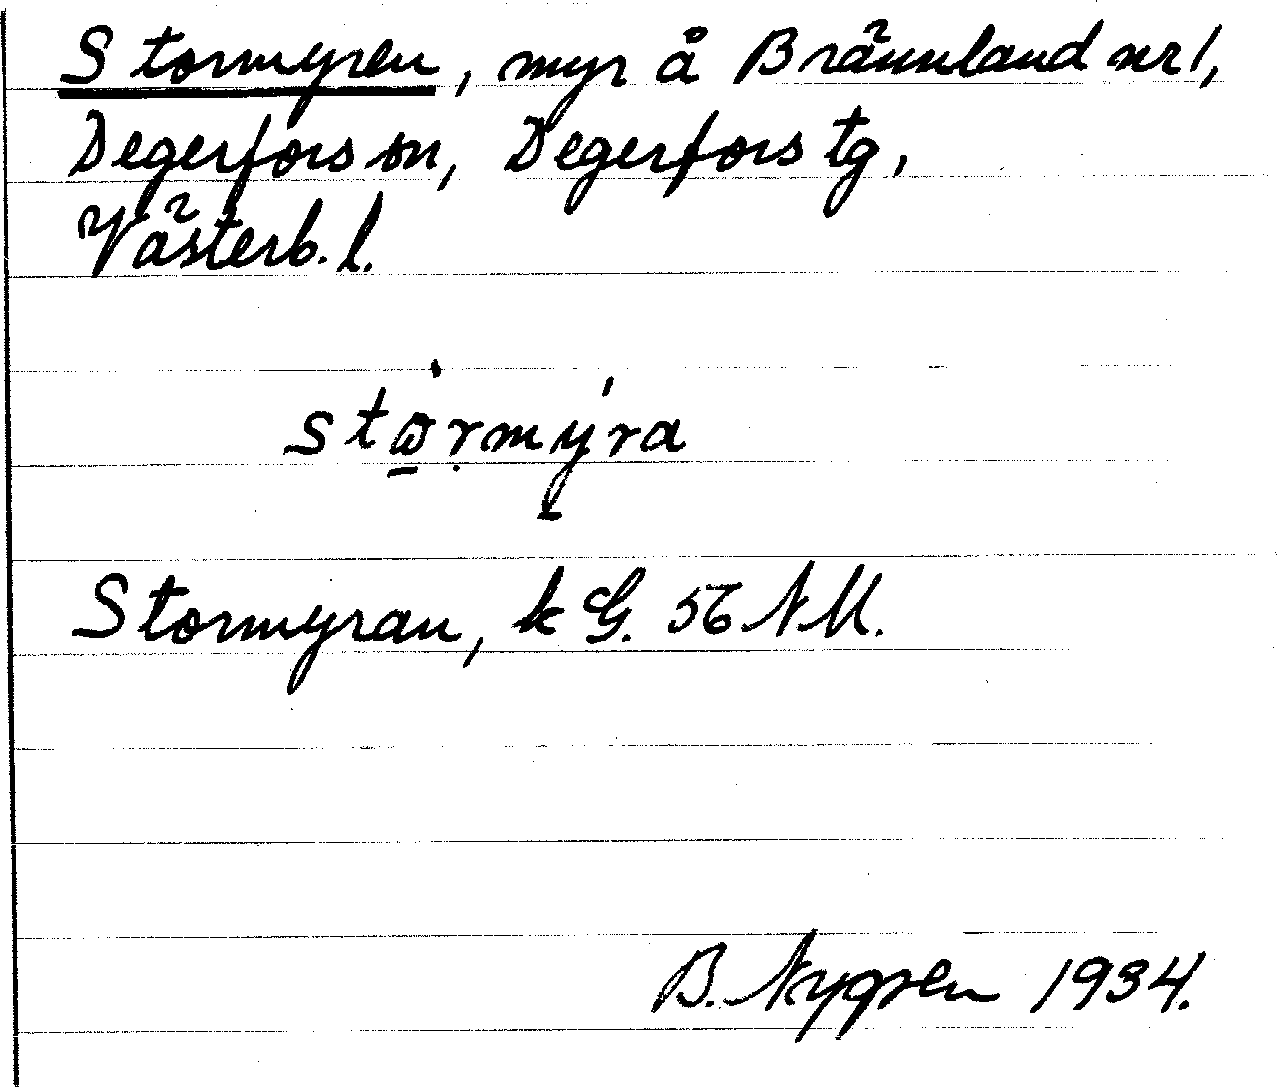 Stormyren, myr å Brännland nr 1,
Degerfors sn, Degerfors tg,
Västerb. l.
Stormyran, k G. 56 NM.
B. Nygren 1934.